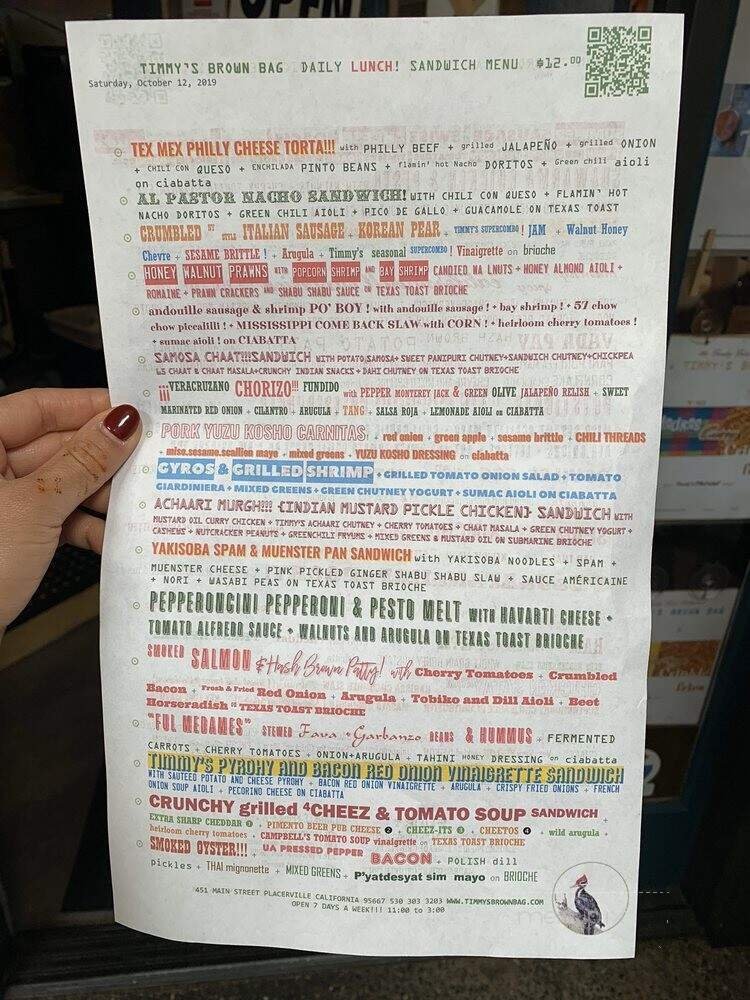 OPEN
TIMMY'S BROWN BAG DAILY LUNCH! SANDWICH MENU $12.00
Saturday, October 12, 2019
TEX MEX PHILLY CHEESE TORTA!!! with PHILLY BEEF + grilled JALAPEÑO + grilled ONION
+ CHILI CON QUESO + ENCHILADA PINTO BEANS + flamin' hot Nacho DORITOS + Green chili aioli
on ciabatta
AL PASTOR NACHO SANDWICH! WITH CHILI CON QUESO + FLAMIN' HOT
NACHO DORITOS + GREEN CHILI AIOLI + PICO DE GALLO + GUACAMOLE ON TEXAS TOAST
CRUMBLED NY STYLE ITALIAN SAUSAGE + KOREAN PEAR + TIMMY'S SUPERCOMBO! JAM + Walnut Honey
Chevre + SESAME BRITTLE ! + Arugula + Timmy's seasonal SUPERCOMBO! Vinaigrette on brioche
HONEY WALNUT PRAWNS WITH POPCORN SHRIMP AND BAY SHRIMP CANDIED WA LNUTS + HONEY ALMOND AIOLI +
ROMAINE + PRAWN CRACKERS AND SHABU SHABU SAUCE ON TEXAS TOAST BRIOCHE
andouille sausage & shrimp PO' BOY ! with andouille sausage ! + bay shrimp ! + 57 chow
chow piccalilli ! + MISSISSIPPI COME BACK SLAW with CORN ! + heirloom cherry tomatoes !
+ sumac aioli ! on CIABATTA
SAMOSA CHAAT!!!SANDWICH WITH POTATO SAMOSA+ SWEET PANIPURI CHUTNEY+SANDWICH CHUTNEY+CHICKPEA
LS CHAAT & CHAAT MASALA+CRUNCHY INDIAN SNACKS + DAHI CHUTNEY ON TEXAS TOAST BRIOCHE
¡¡¡VERACRUZANO CHORIZO!!! FUNDIDO with PEPPER MONTEREY JACK & GREEN OLIVE JALAPEÑO RELISH + SWEET
MARINATED RED ONION + CILANTRO + ARUGULA + TANG + SALSA ROJA + LEMONADE AIOLI on CIABATTA
PORK YUZU KOSHO CARNITAS + red onion + green apple + sesame brittle + CHILI THREADS
+ miso.sesame.scallion mayo + mixed greens + YUZU KOSHO DRESSING on ciabatta
GYROS & GRILLED SHRIMP + GRILLED TOMATO ONION SALAD + TOMATO
GIARDINIERA + MIXED GREENS + GREEN CHUTNEY YOGURT + SUMAC AIOLI ON CIABATTA
ACHAARI MURGH!!! {INDIAN MUSTARD PICKLE CHICKEN} SANDWICH WITH
MUSTARD OIL CURRY CHICKEN + TIMMY'S ACHAARI CHUTNEY + CHERRY TOMATOES + CHAAT MASALA + GREEN CHUTNEY YOGURT +
CASHEWS + NUTCRACKER PEANUTS + GREENCHILI FRYUMS + MIXED GREENS & MUSTARD OIL ON SUBMARINE BRIOCHE
YAKISOBA SPAM & MUENSTER PAN SANDWICH with YAKISOBA NOODLES + SPAM +
MUENSTER CHEESE + PINK PICKLED GINGER SHABU SHABU SLAW + SAUCE AMÉRICAINE
+ NORI + WASABI PEAS ON TEXAS TOAST BRIOCHE
PEPPERONCINI PEPPERONI & PESTO MELT WITH HAVARTI CHEESE +
TOMATO ALFREDO SAUCE + WALNUTS AND ARUGULA ON TEXAS TOAST BRIOCHE
SMOKED SALMON & Hash Brown Patty! with Cherry Tomatoes + Crumbled
Bacon + Fresh & Fried Red Onion + Arugula + Tobiko and Dill Aioli + Beet
Horseradish on TEXAS TOAST BRIOCHE
"FUL MEDAMES" STEWED Fava + Garbanzo BEANS & HUMMUS + FERMENTED
CARROTS + CHERRY TOMATOES + ONION+ARUGULA + TAHINI HONEY DRESSING on ciabatta
TIMMY'S PYROHY AND BACON RED ONION VINAIGRETTE SANDWICH
WITH SAUTEED POTATO AND CHEESE PYROHY + BACON RED ONION VINAIGRETTE + ARUGULA + CRISPY FRIED ONIONS + FRENCH
ONION SOUP AIOLI + PECORINO CHEESE ON CIABATTA
CRUNCHY grilled 4CHEEZ & TOMATO SOUP SANDWICH +
EXTRA SHARP CHEDDAR ❶ + PIMENTO BEER PUB CHEESE ❷ + CHEEZ-ITS ❸ + CHEETOS ❹ + wild arugula +
heirloom cherry tomatoes + CAMPBELL'S TOMATO SOUP vinaigrette on TEXAS TOAST BRIOCHE
SMOKED OYSTER!!! + UA PRESSED PEPPER BACON + POLISH dill
pickles + THAI mignonette + MIXED GREENS + P'yatdesyat sim mayo on BRIOCHE
451 MAIN STREET PLACERVILLE CALIFORNIA 95667 530 303 3203 WWW.TIMMYSBROWNBAG.COM
OPEN 7 DAYS A WEEK!!! 11:00 to 3:00